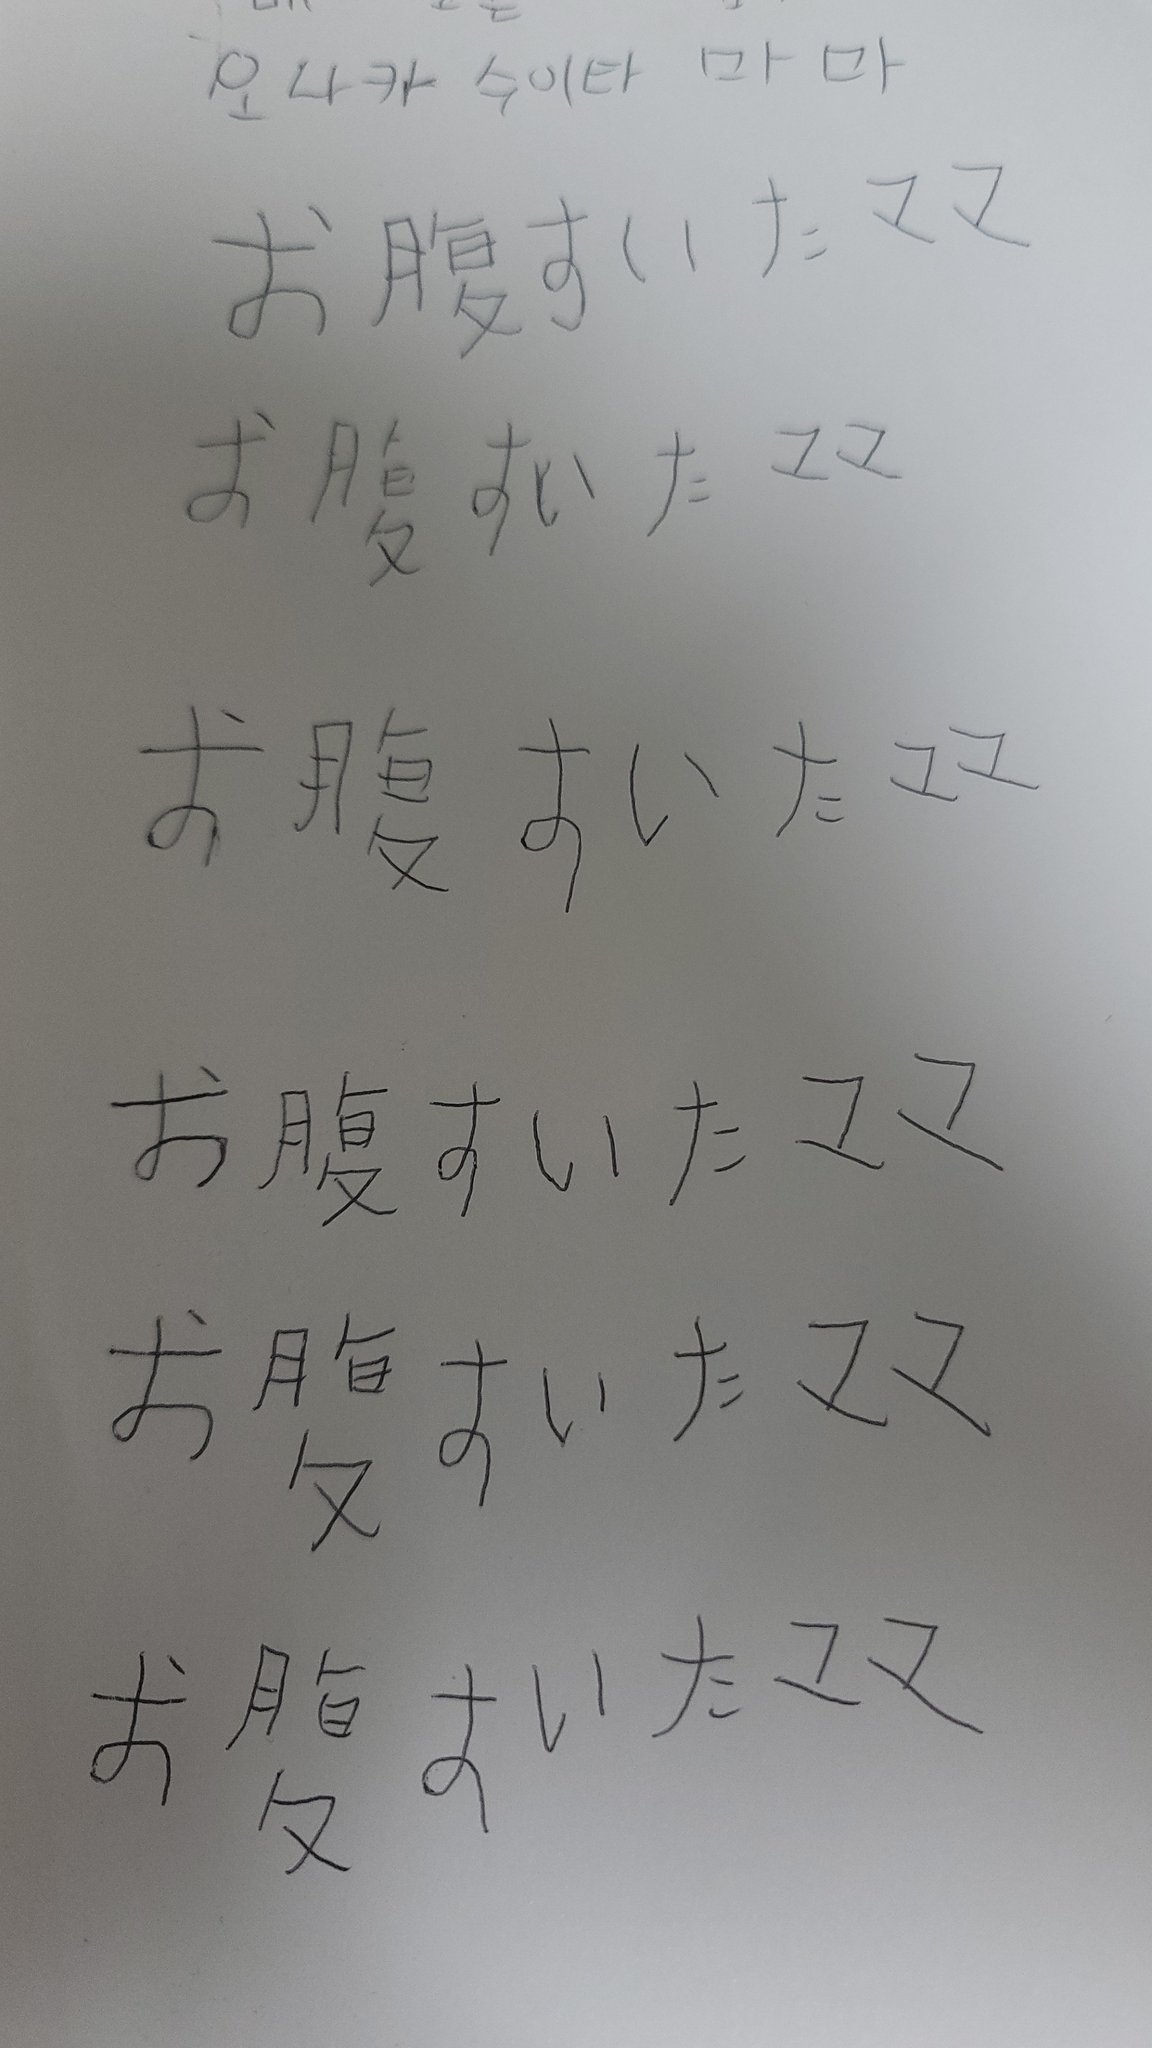 오나카 수이타 마마
お腹すいたママ
お腹すいたママ
お腹すいたママ
お腹すいたママ
お腹すいたママ
お腹すいたママ